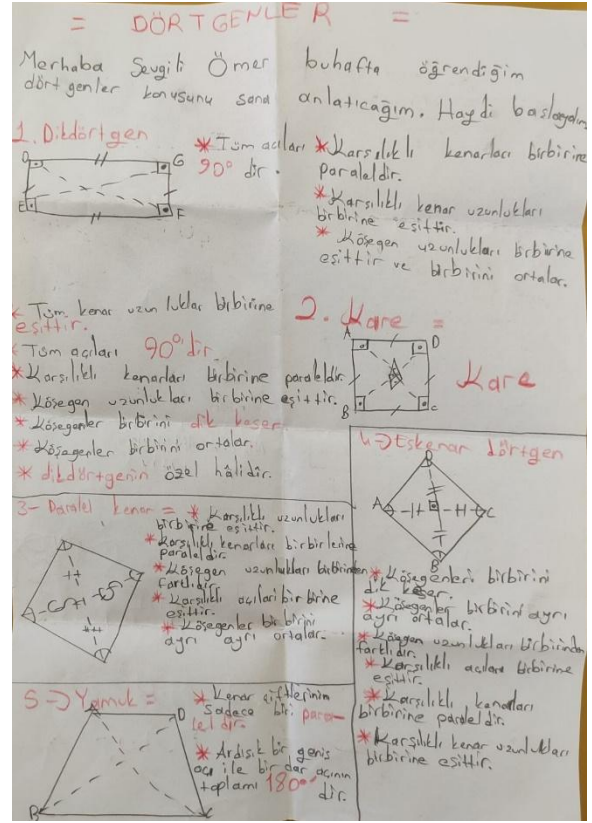 = DÖRTGENLER =
Merhaba Sevgili Ömer bu hafta öğrendiğim
dörtgenler konusunu sana anlatıcağım. Haydi başlayalım
1. Dikdörtgen
* Tüm açıları
90° dir.
* Karşılıklı kenarları birbirine
paraleldir.
* Karşılıklı kenar uzunlukları
birbirine eşittir.
* Köşegen uzunlukları birbirine
eşittir ve birbirini ortalar.
G
E
F
2. Kare =
* Tüm kenar uzunluklar birbirine
eşittir.
* Tüm açıları 90° dir
* Karşılıklı kenarları birbirine paraleldir.
* Köşegen uzunlukları birbirine eşittir.
* Köşegenler birbirini dik keser
* Köşegenler birbirini ortalar.
* dikdörtgenin özel hâlidir.
A D
B C
Kare
3- Paralel kenar = * Karşılıklı uzunlukları
birbirine eşittir.
* Karşılıklı kenarları birbirlerine
paraleldir.
* Köşegen uzunlukları birbirinden
farklıdır.
* Karşılıklı açıları birbirine
eşittir.
* Köşegenler birbirini
ayrı ayrı ortalar.
4-> Eşkenar dörtgen
D
A C
B
* Köşegenleri birbirini
dik keser.
* Köşegenler birbirini ayrı
ayrı ortalar.
* Köşegen uzunlukları birbirinden
farklıdır.
* Karşılıklı açıları birbirine
eşittir.
* Karşılıklı kenarları
birbirine paraleldir.
* Karşılıklı kenar uzunlukları
birbirine eşittir.
5-> Yamuk =
* Kenar çiftlerinin
sadece biri para-
leldir.
* Ardışık bir geniş
açı ile bir dar açının
toplamı 180° dir.
D
B C